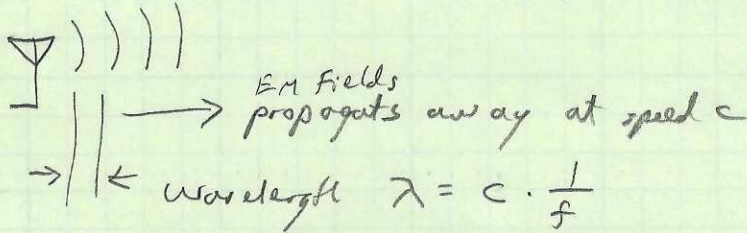 EM Fields
propogats away at speed c
wavelength λ = c · 1/f